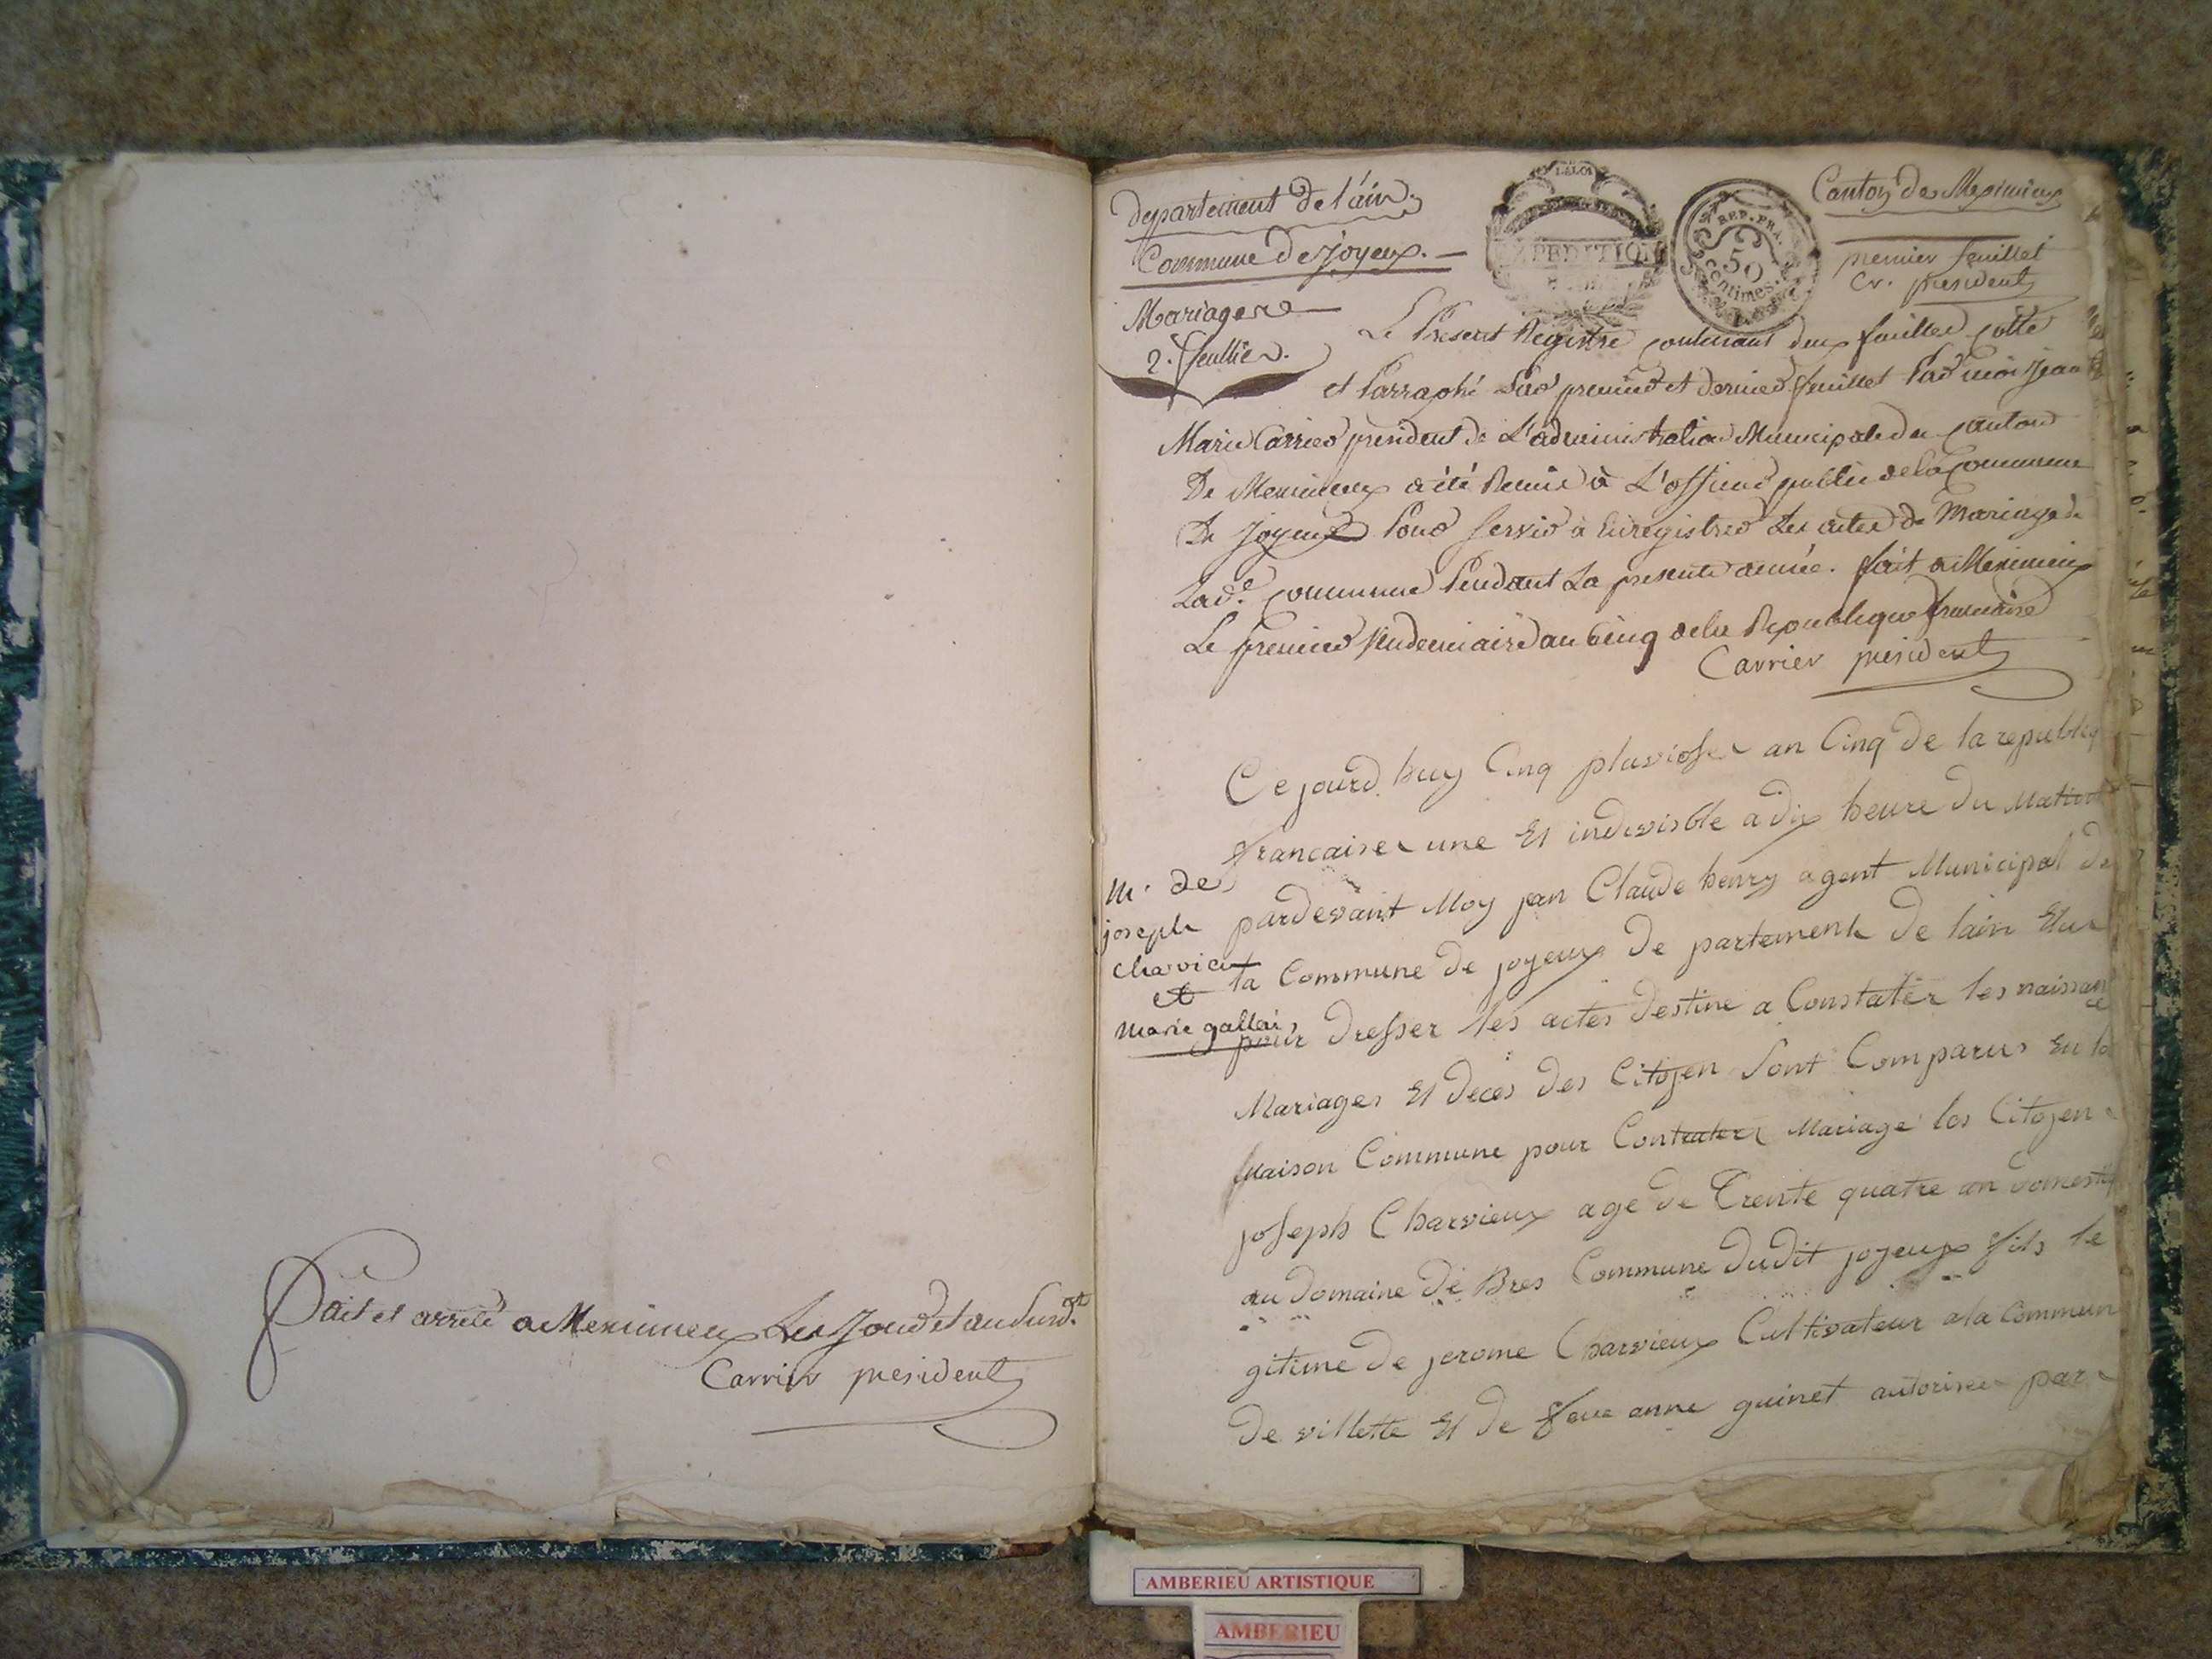 Fait et arreté a Meximieux Les Jour et an Susd.
Carrier president
Departement de l'ain
Commune de Joyeux.
Mariages
2. feuillier.
LA LOI
EXPEDITION
REP. FRA.
50
centimes.
Canton de Meximieux
premier feuillet
Cr. president
Le Present Registre contenant deux feuillet cotté
et Parraphé Par premier et dernier feuillet Par moi Jean
Marie Carrier president de L'administration Municipale du canton
De Meximieux a été Remis à L'officier public de la Commune
De Joyeux Pour servir à Enregistrer Les actes de Mariage de
Lad.e Commune Pendant La presente année. fait a Meximieux
Le premier Vindemiaire au Cinq de la Republique francaise
Carrier president
Ce jourd huy Cinq pluviose an Cinq de la republiq
francaise une Et indivisble a dix heure du Matin
pardevant Moy jean Claude henry agent Municipal de
la Commune de joyeux De partement De lain Elue
pour Dresser les actes Destine a Constater les naissance
Mariages Et deces des Citoyen Sont Comparus En la
Maison Commune pour Contrater Mariage les Citoyen
joseph Charvieux age de Trente quatre an domestiq
au Domaine de Bres Commune dudit joyeux fils le
gitime de jerome Charvieux Cultivateur a la Commun
De villette Et de feue anne guinet autorisee par
M. de
joseph
Charvieu
et
Marie gallais
AMBERIEU ARTISTIQUE
AMBERIEU